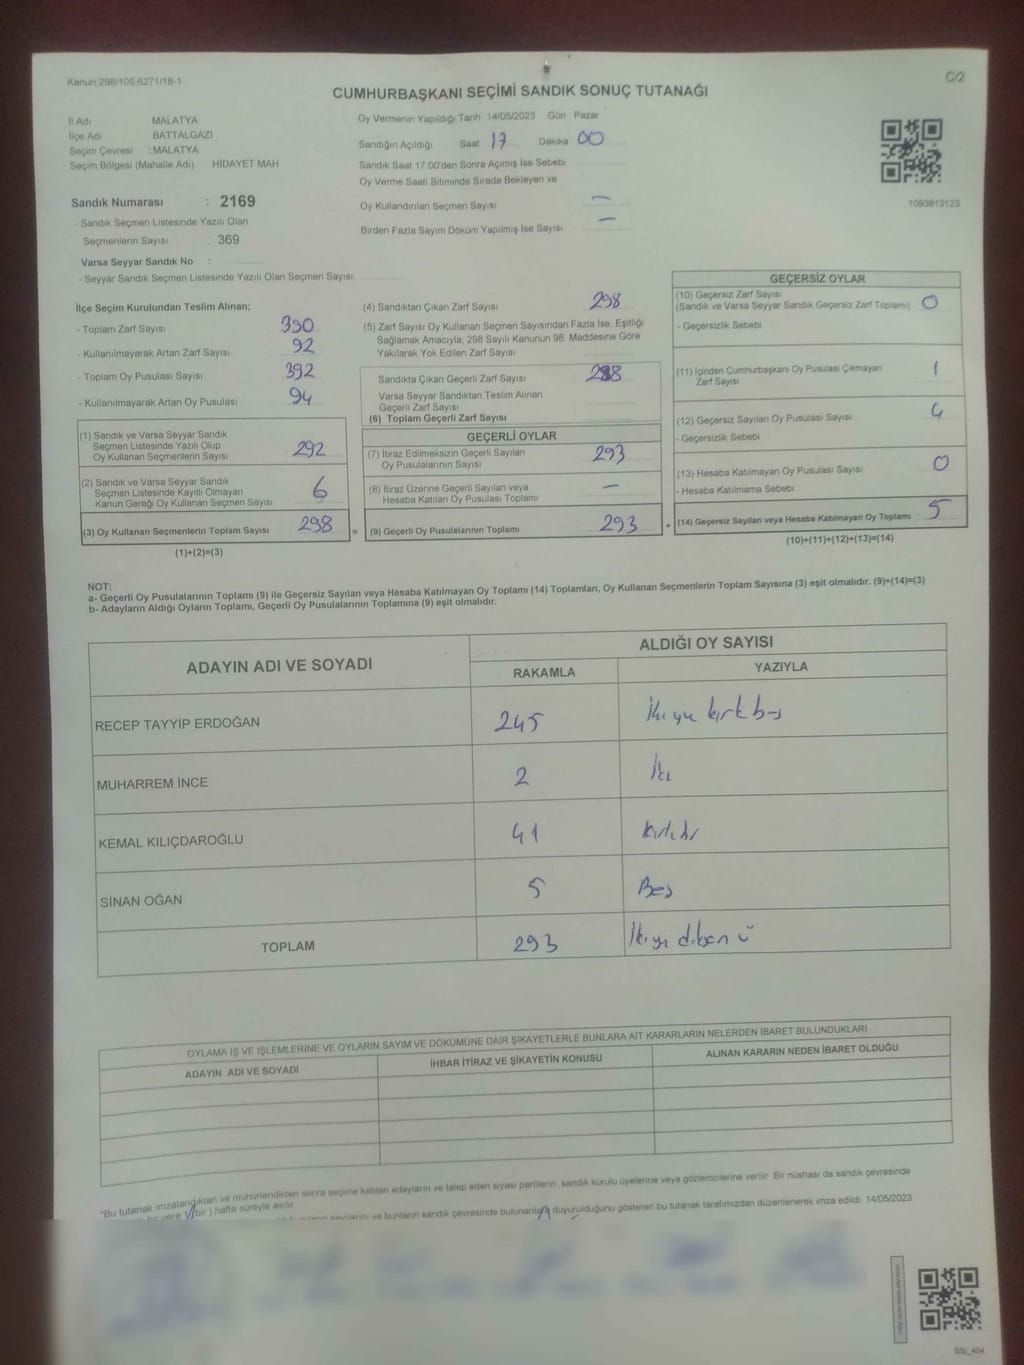 Kanun:298/105 6271/18-1
C/2
CUMHURBAŞKANI SEÇİMİ SANDIK SONUÇ TUTANAĞI
İl Adı MALATYA
İlçe Adı BATTALGAZI
Seçim Çevresi : MALATYA
Seçim Bölgesi (Mahalle Adı) HİDAYET MAH
Sandık Numarası : 2169
- Sandık Seçmen Listesinde Yazılı Olan
Seçmenlerin Sayısı : 369
Varsa Seyyar Sandık No :
- Seyyar Sandık Seçmen Listesinde Yazılı Olan Seçmen Sayısı
Oy Vermenin Yapıldığı Tarih 14/05/2023 Gün Pazar
Sandığın Açıldığı Saat 17 Dakika 00
Sandık Saat 17:00'den Sonra Açılmış İse Sebebi
Oy Verme Saati Bitiminde Sırada Bekleyen ve
Oy Kullandırılan Seçmen Sayısı —
Birden Fazla Sayım Döküm Yapılmış İse Sayısı —
1093813123
İlçe Seçim Kurulundan Teslim Alınan;
- Toplam Zarf Sayısı 390
- Kullanılmayarak Artan Zarf Sayısı 92
- Toplam Oy Pusulası Sayısı 392
- Kullanılmayarak Artan Oy Pusulası 94
(1) Sandık ve Varsa Seyyar Sandık
Seçmen Listesinde Yazılı Olup
Oy Kullanan Seçmenlerin Sayısı 292
(2) Sandık ve Varsa Seyyar Sandık
Seçmen Listesinde Kayıtlı Olmayan
Kanun Gereği Oy Kullanan Seçmen Sayısı 6
(3) Oy Kullanan Seçmenlerin Toplam Sayısı 298 =
(1)+(2)=(3)
(4) Sandıktan Çıkan Zarf Sayısı 298
(5) Zarf Sayısı Oy Kullanan Seçmen Sayısından Fazla İse, Eşitliği
Sağlamak Amacıyla, 298 Sayılı Kanunun 98. Maddesine Göre
Yakılarak Yok Edilen Zarf Sayısı
Sandıkta Çıkan Geçerli Zarf Sayısı 298
Varsa Seyyar Sandıktan Teslim Alınan
Geçerli Zarf Sayısı
(6) Toplam Geçerli Zarf Sayısı
GEÇERLİ OYLAR
(7) İtiraz Edilmeksizin Geçerli Sayılan
Oy Pusulalarının Sayısı 293
(8) İtiraz Üzerine Geçerli Sayılan veya
Hesaba Katılan Oy Pusulası Toplamı —
(9) Geçerli Oy Pusulalarının Toplamı 293 +
GEÇERSİZ OYLAR
(10) Geçersiz Zarf Sayısı
(Sandık ve Varsa Seyyar Sandık Geçersiz Zarf Toplamı) 0
- Geçersizlik Sebebi
(11) İçinden Cumhurbaşkanı Oy Pusulası Çıkmayan
Zarf Sayısı 1
(12) Geçersiz Sayılan Oy Pusulası Sayısı 4
- Geçersizlik Sebebi
(13) Hesaba Katılmayan Oy Pusulası Sayısı 0
- Hesaba Katılmama Sebebi
(14) Geçersiz Sayılan veya Hesaba Katılmayan Oy Toplamı 5
(10)+(11)+(12)+(13)=(14)
NOT:
a- Geçerli Oy Pusulalarının Toplamı (9) ile Geçersiz Sayılan veya Hesaba Katılmayan Oy Toplamı (14) Toplamları, Oy Kullanan Seçmenlerin Toplam Sayısına (3) eşit olmalıdır. (9)+(14)=(3)
b- Adayların Aldığı Oyların Toplamı, Geçerli Oy Pusulalarının Toplamına (9) eşit olmalıdır.
ADAYIN ADI VE SOYADI
ALDIĞI OY SAYISI
RAKAMLA YAZIYLA
RECEP TAYYİP ERDOĞAN 245 İkiyüz kırk beş
MUHARREM İNCE 2 İki
KEMAL KILIÇDAROĞLU 41 kırkbir
SİNAN OĞAN 5 Beş
TOPLAM 293 İkiyüz doksan üç
OYLAMA İŞ VE İŞLEMLERİNE VE OYLARIN SAYIM VE DÖKÜMÜNE DAİR ŞİKAYETLERLE BUNLARA AİT KARARLARIN NELERDEN İBARET BULUNDUKLARI
ADAYIN ADI VE SOYADI İHBAR İTİRAZ VE ŞİKAYETİN KONUSU ALINAN KARARIN NEDEN İBARET OLDUĞU
"Bu tutanak imzalandıktan ve mühürlendikten sonra seçime katılan adayların ve talep eden siyasi partilerin sandık kurulu üyelerine veya gözlemcilerine verilir. Bir nüshası da sandık çevresinde
bir yere 1(bir) hafta süreyle asılır
ve bunların sandık çevresinde bulunanlara duyurulduğunu gösteren bu tutanak tarafımızdan düzenlenerek imza edildi. 14/05/2023
SSI_404